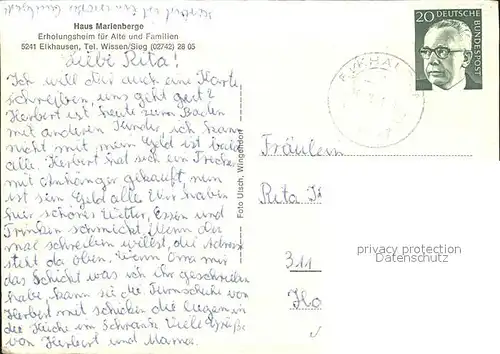 Haus Marienberge
Erholungsheim für Alte und Familien
5241 Elkhausen, Tel. Wissen/Sieg (02742) 28 05
20 DEUTSCHE
BUNDESPOST
Liebe Rita!
Ich will dir auch eine Karte
schreiben, uns geht gut?
Herbert ist heute zum Baden
mit anderen Kinder, ich kann
nicht mit mein Geld ist bald
alle. Herbert hat sich ein Trecker
mit Anhänger gekauft, nun
ist sein Geld alle. Wir haben
hier schönes Wetter, Essen und
Trinken schmickt. Wenn du
mal schreiben willst, die Adress
steht da oben. Wenn Oma mir
das Schickt was ich ihr geschrieben
habe, kann sie die Turnschuhe von
Herbert mit schicken die liegen in
der Küche im Schrank Viele Grüße
von Herbert und Mama.
Foto Ulsch, Wingendorf
Fräulein
Rita
311
privacy protection
Datenschutz